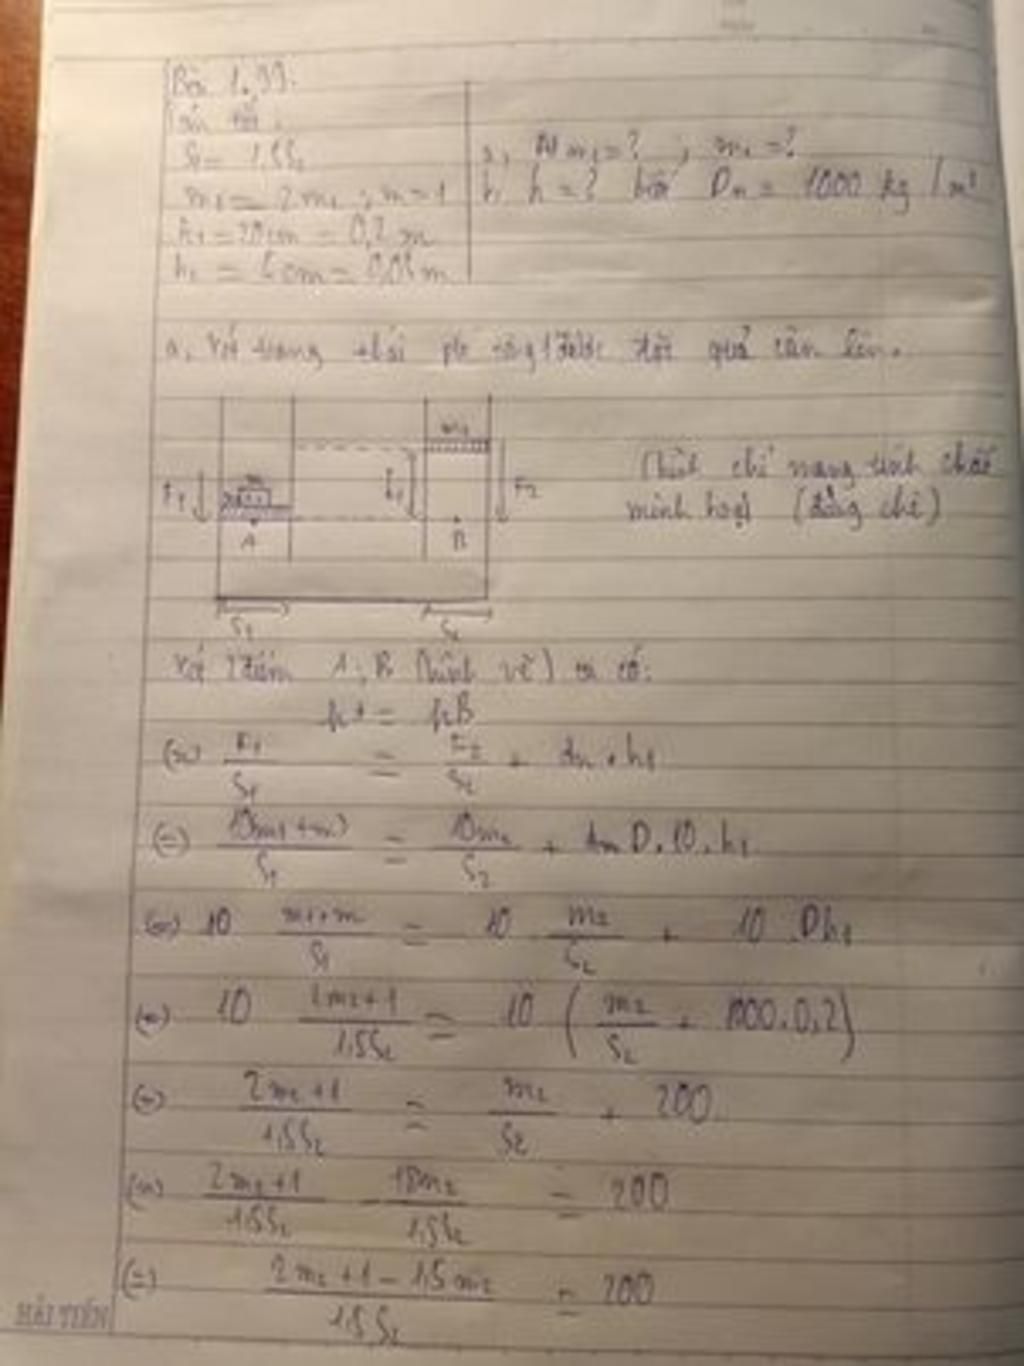 Bài 1.99.
Tóm tắt:
S1 = 1,5S2
m1 = 2m2 ; m = 1
h1 = 20cm = 0,2 m
h2 = 5cm = 0,05m
a, m1 = ? ; m2 = ?
b, h = ? biết Dn = 1000 kg/m³
a, Xét trạng thái pít tông 1 được đặt quả cân lên.
F1 m A h1 m2 B F2
S1 S2
(hình chỉ mang tính chất
minh hoạ) (đồng chí)
Xét 2 điểm A; B (hình vẽ) ta có:
pA = pB
(=) F1/S1 = F2/S2 + dn.h1
(=) 10(m1+m)/S1 = 10m2/S2 + D.10.h1
(=) 10 m1+m/S1 = 10 m2/S2 + 10 Dh1
(=) 10 2m2+1/1,5S2 = 10 (m2/S2 + 1000.0,2)
(=) 2m2+1/1,5S2 = m2/S2 + 200
(=) 2m2+1/1,5S2 - 1,5m2/1,5S2 = 200
(=) 2m2+1-1,5m2/1,5S2 = 200
HẢI TIẾN